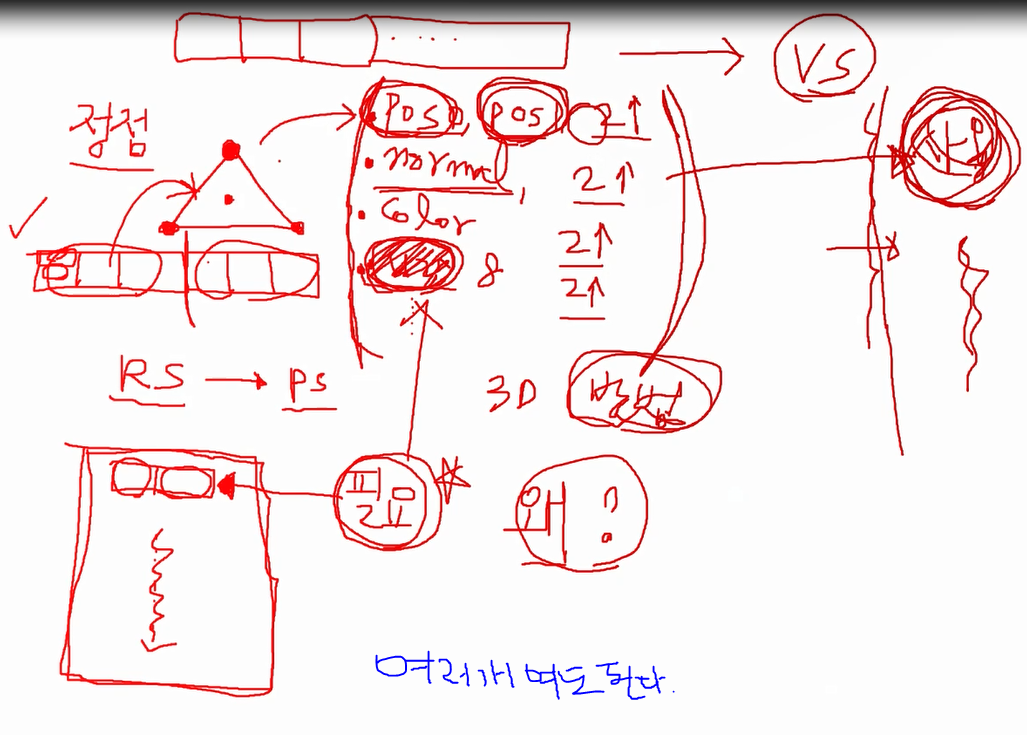 ....
VS
정점
Pos, pos 2↑
normal, 2↑
Color 2↑
8 2↑
RS → PS
3D 방법
필요
왜?
여러개 여도 된다.